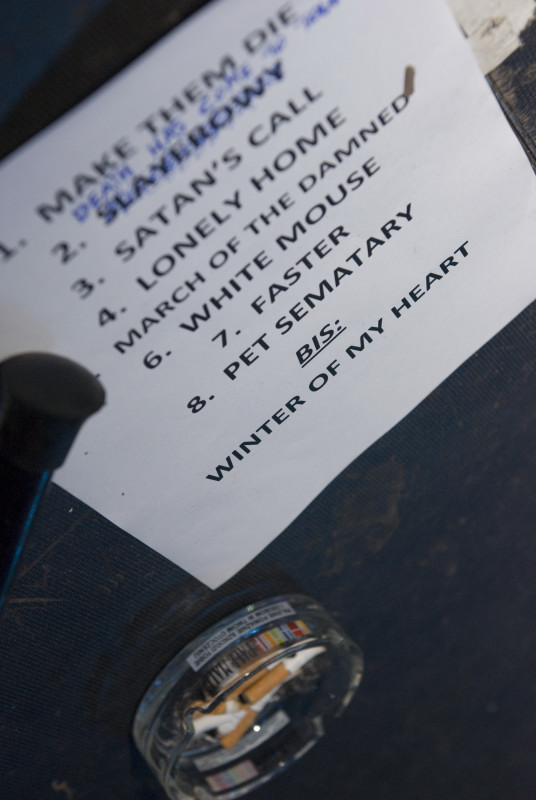 1. MAKE THEM DIE
DEATH HAS COME
2. SLAYEROWY
3. SATAN'S CALL
4. LONELY HOME
MARCH OF THE DAMNED
6. WHITE MOUSE
7. FASTER
8. PET SEMATARY
BIS:
WINTER OF MY HEART